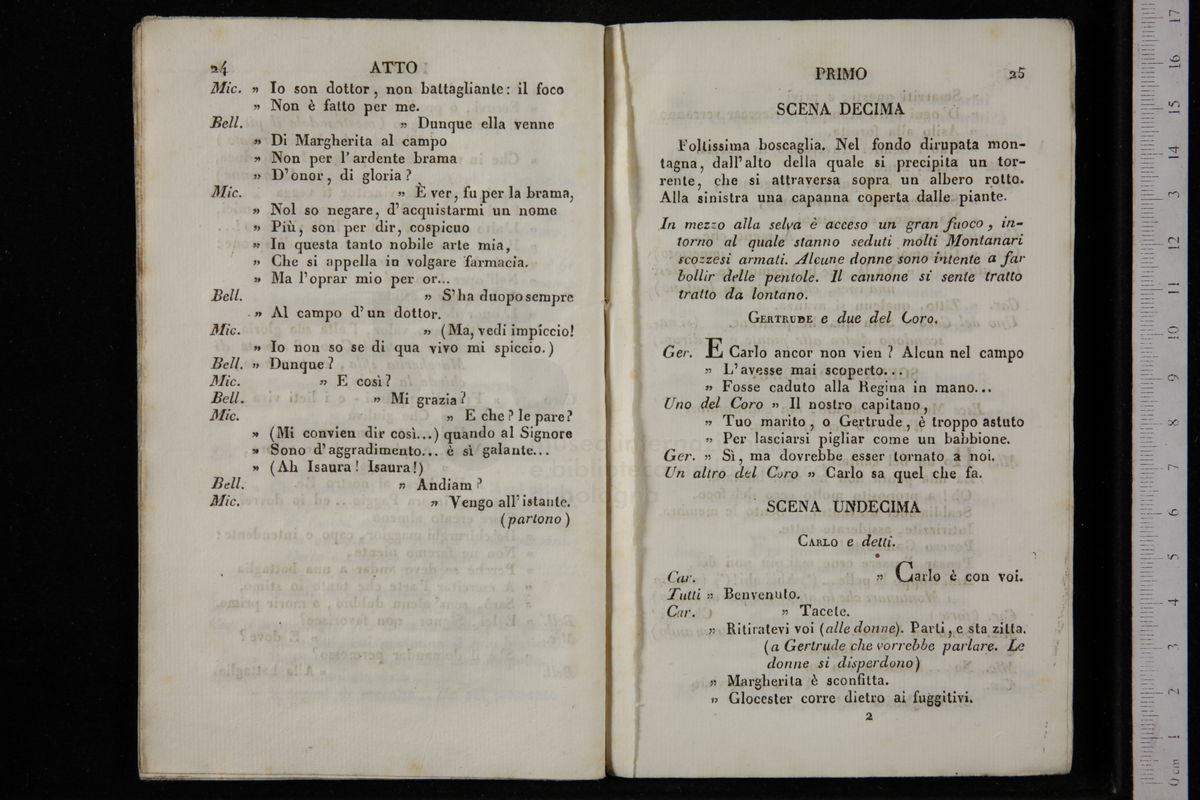 24 ATTO
Mic. » Io son dottor, non battagliante: il foco
» Non è fatto per me.
Bell. » Dunque ella venne
» Di Margherita al campo
» Non per l'ardente brama
» D'onor, di gloria?
Mic. » È ver, fu per la brama,
» Nol so negare, d'acquistarmi un nome
» Più, son per dir, cospicuo
» In questa tanto nobile arte mia,
» Che si appella in volgare farmacia.
» Ma l'oprar mio per or...
Bell. » S'ha duopo sempre
» Al campo d'un dottor.
Mic. » (Ma, vedi impiccio!
» Io non so se di qua vivo mi spiccio.)
Bell. » Dunque?
Mic. » E così?
Bell. » Mi grazia?
Mic. » E che? le pare?
» (Mi convien dir così...) quando al Signore
» Sono d'aggradimento... è sì galante...
» (Ah Isaura! Isaura!)
Bell. » Andiam?
Mic. » Vengo all'istante.
(partono)
PRIMO 25
SCENA DECIMA
Foltissima boscaglia. Nel fondo dirupata mon-
tagna, dall'alto della quale si precipita un tor-
rente, che si attraversa sopra un albero rotto.
Alla sinistra una capanna coperta dalle piante.
In mezzo alla selva è acceso un gran fuoco, in-
torno al quale stanno seduti molti Montanari
scozzesi armati. Alcune donne sono intente a far
bollir delle pentole. Il cannone si sente tratto
tratto da lontano.
GERTRUDE e due del Coro.
Ger. E Carlo ancor non vien? Alcun nel campo
» L'avesse mai scoperto...
» Fosse caduto alla Regina in mano...
Uno del Coro » Il nostro capitano,
» Tuo marito, o Gertrude, è troppo astuto
» Per lasciarsi pigliar come un babbione.
Ger. » Sì, ma dovrebbe esser tornato a noi.
Un altro del Coro » Carlo sa quel che fa.
SCENA UNDECIMA
CARLO e detti.
Car. » Carlo è con voi.
Tutti » Benvenuto.
Car. » Tacete.
» Ritiratevi voi (alle donne). Parti, e sta zitta.
(a Gertrude che vorrebbe parlare. Le
donne si disperdono)
» Margherita è sconfitta.
» Glocester corre dietro ai fuggitivi.
2